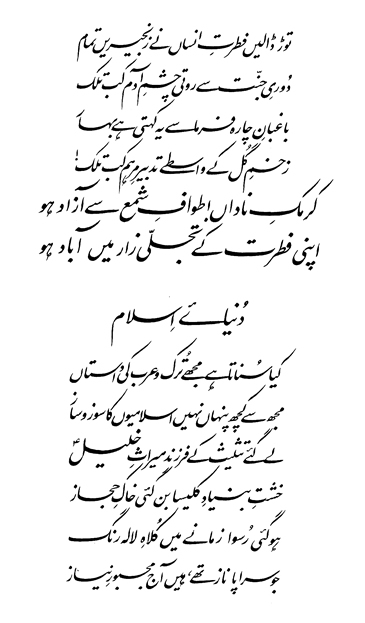 توڑ ڈالیں فطرتِ انساں نے زنجیریں تمام
دُوریِ جنّت سے روتی چشمِ آدم کب تلک
باغبانِ چارہ فرما سے یہ کہتی ہے بہار
زخمِ گُل کے واسطے تدبیرِ مرہم کب تلک!
کرمکِ ناداں! طوافِ شمع سے آزاد ہو
اپنی فطرت کے تجلّی زار میں آباد ہو
دُنیائے اِسلام
کیا سُناتا ہے مجھے تُرک و عرب کی داستاں
مجھ سے کچھ پنہاں نہیں اسلامیوں کا سوز و ساز
لے گئے تثلیث کے فرزند میراثِ خلیلؑ
خشتِ بنیادِ کلیسا بن گئی خاکِ حجاز
ہوگئی رُسوا زمانے میں کُلاہِ لالہ رنگ
جو سراپا ناز تھے، ہیں آج مجبورِ نیاز